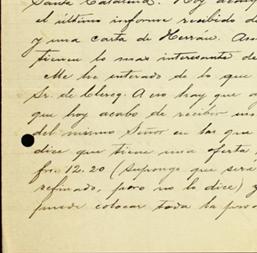 Santa Catalina. Hoy
el último informe recibido d
y una carta de Herrán. 
tienen lo mas interesante de
Me he enterado de lo que
Sr. de Clercq. A eso hay que a
que hoy acabo de recibir un
del mismo Señor en las que
dice que tiene una oferta
frs. 12.20 (supongo que será
refinado, pero no lo dice) y
puede colocar toda la pro